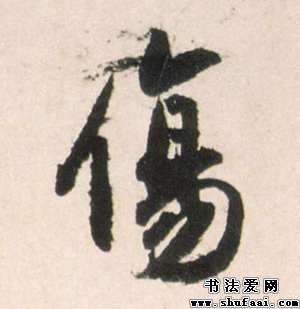 傷
书法爱网
www.shufaai.com